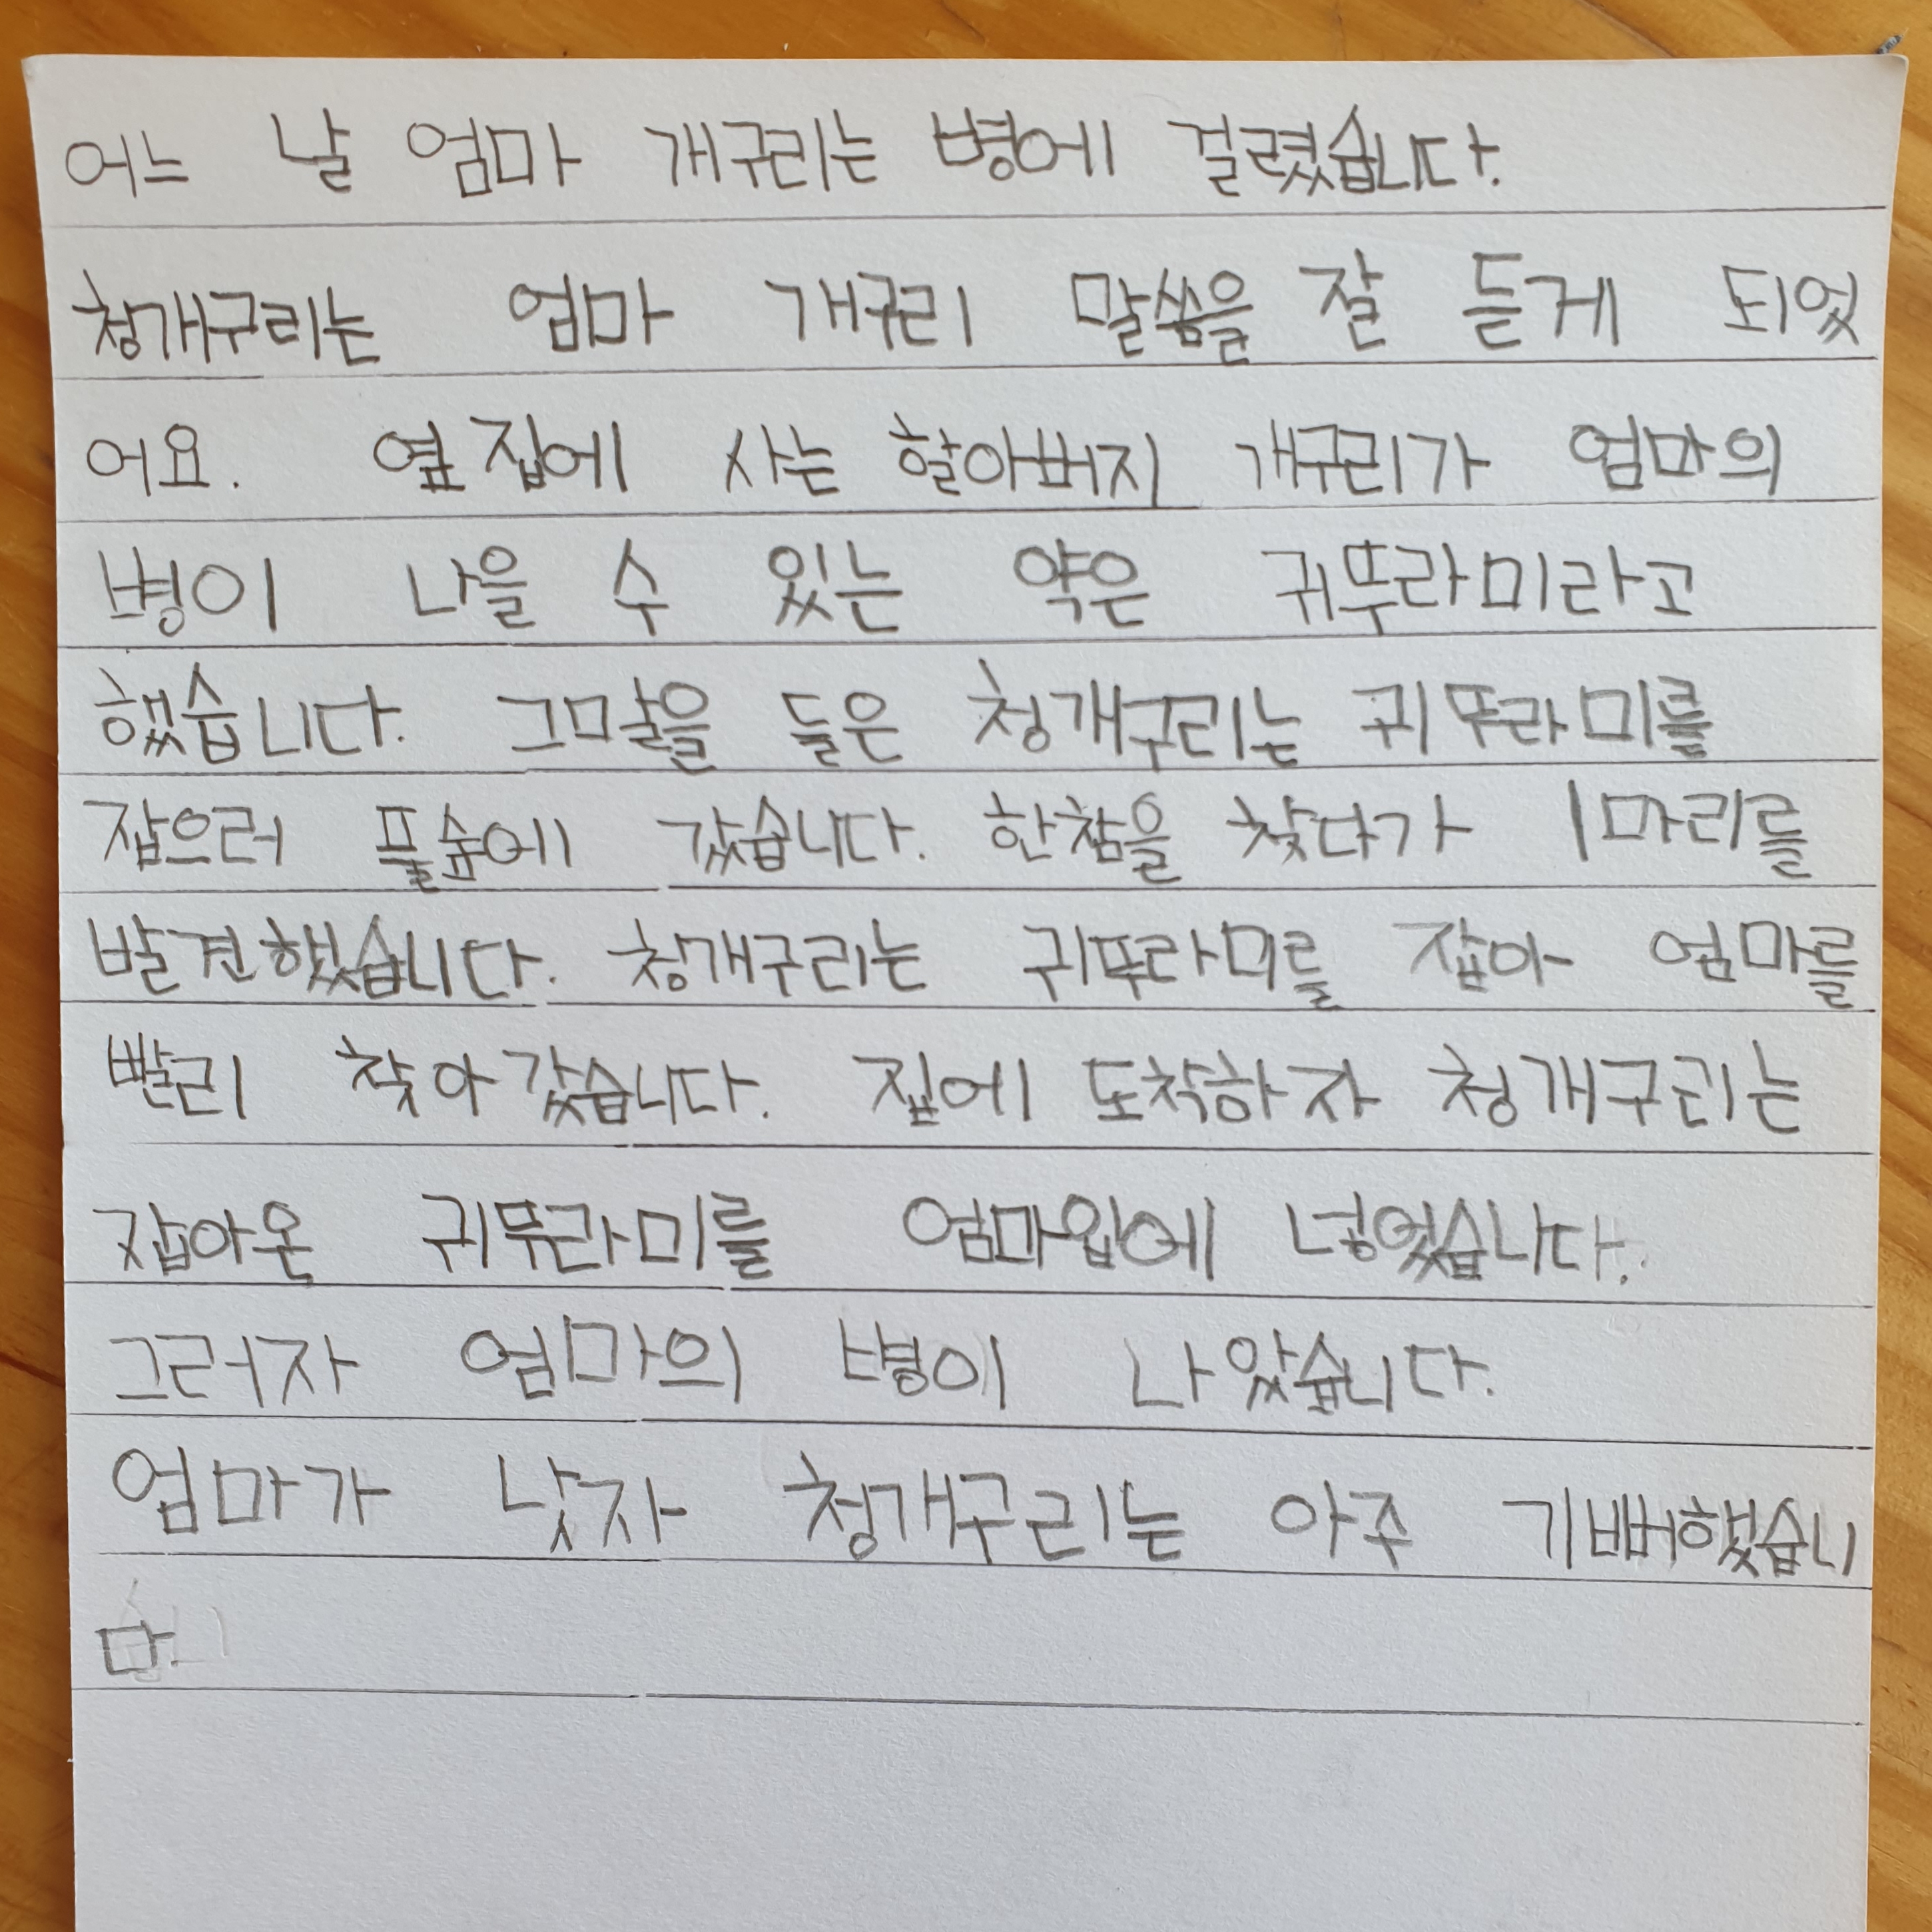 어느 날 엄마 개구리는 병에 걸렸습니다.
청개구리는 엄마 개구리 말씀을 잘 듣게 되었
어요. 옆집에 사는 할아버지 개구리가 엄마의
병이 나을 수 있는 약은 귀뚜라미라고
했습니다. 그말을 들은 청개구리는 귀뚜라미를
잡으러 풀숲에 갔습니다. 한참을 찾다가 1마리를
발견했습니다. 청개구리는 귀뚜라미를 잡아 엄마를
빨리 찾아갔습니다. 집에 도착하자 청개구리는
잡아온 귀뚜라미를 엄마입에 넣었습니다.
그러자 엄마의 병이 나았습니다.
엄마가 낫자 청개구리는 아주 기뻐했습니
다.